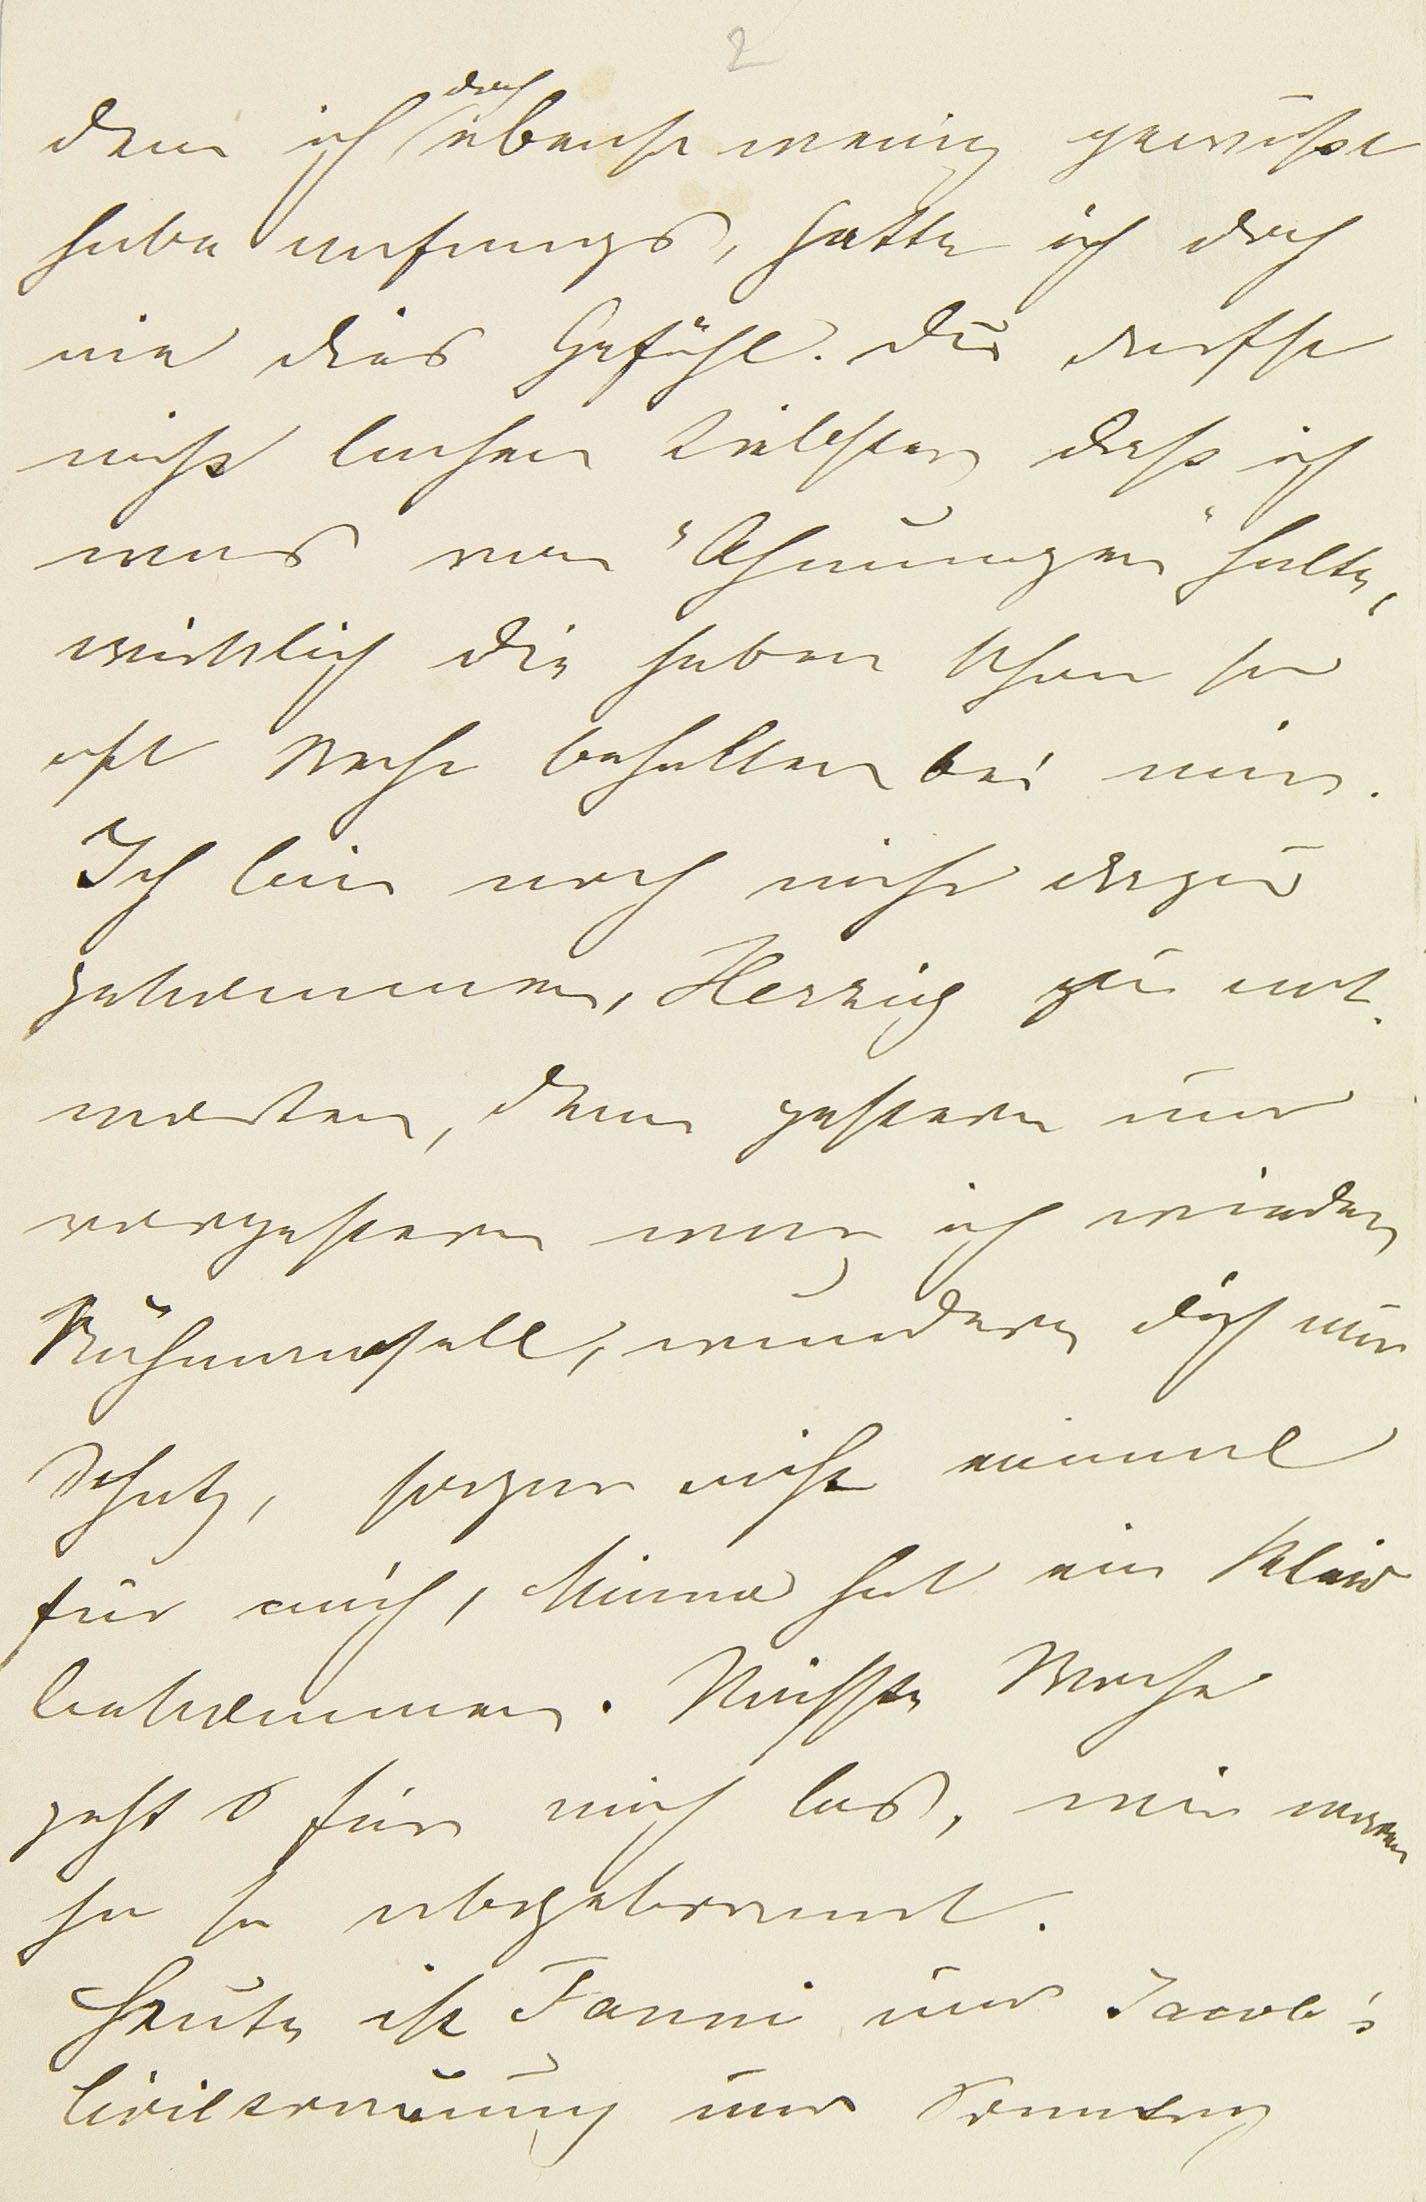 2
dem ich doch ebenso wenig gewußt
habe anfangs, hatte ich doch
nie dies Gefühl. Du darfst
nicht lachen Liebster daß ich
was von "Ahnungen" halte,
wirklich die haben schon so
oft Recht behalten bei mir.
Ich bin noch nicht dazu
gekommen, Herzig zu ant-
worten, denn gestern und
vorgestern war ich wieder
Nähmamsell, wundere dich nur
Schatz, sogar nicht einmal
für mich, Minna hat ein Kleid
bekommen. Nächste Woche
geht's für mich los, wir wagen
so so abgebrannt.
Heute ist Fanni und Jacob's
Civiltrauung und Sonntag